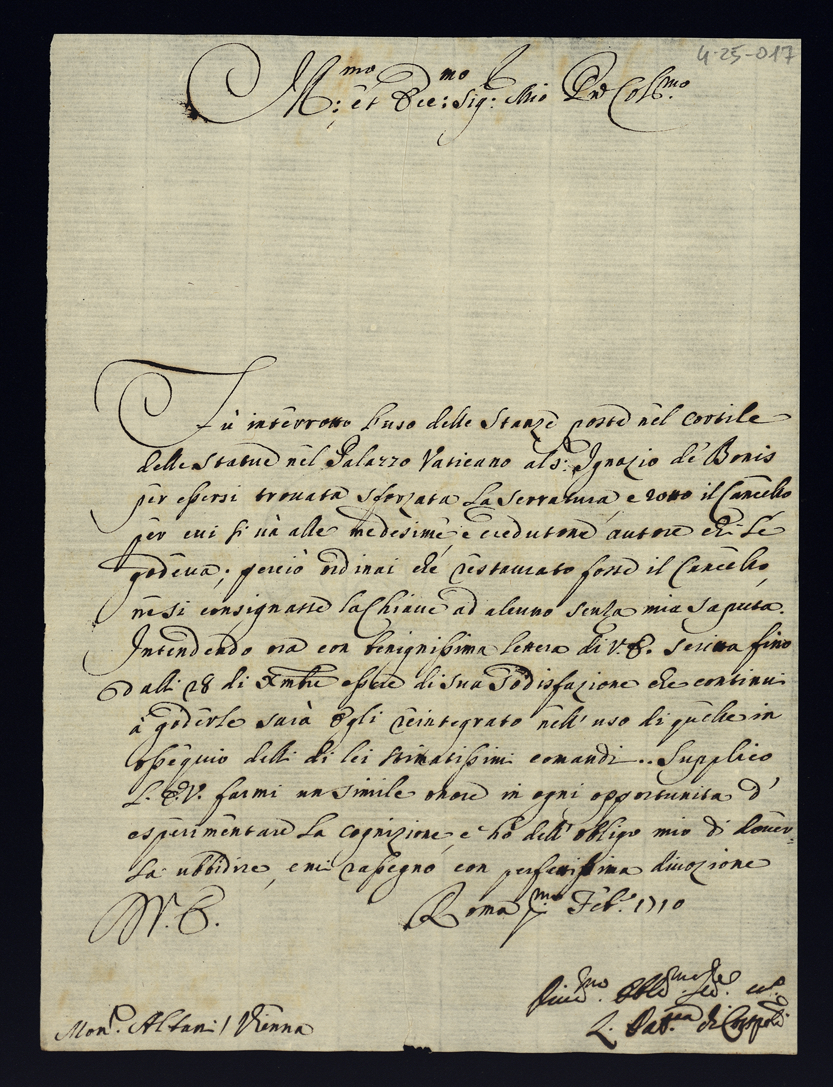 4-25-017
Ill:mo et Ecc:mo Sig: Mio Pne Colmo:
Fù interrotto l'uso delle Stanze poste nel cortile
delle Statue nel Palazzo Vaticano al s: Ignazio de Bonis
per essersi trovata sforzata la serratura e rotto il Cancello
per cui si và alle medesime, e credutone autore chi le
godeva; perciò ordinai che restaurato fosse il Cancello,
ne si consignasse la Chiave ad alcuno senza mia saputa.
Intendendo ora con benignissima lettera di V.E. scritta fino
dalli 28 di Xmbre essere di sua sodisfazione che continui
à goderle sarà Egli reintegrato nell'uso di quelle in
ossequio delli di lei stimatissimi comandi.. Supplico
L'E.V. farmi un simile onore in ogni opportunita d'
esperimentare la cognizione, e hò dell'obligo mio di dover-
la ubbidire, e mi rasegno con perfettissima divozione
D V. E. Roma p:mo Feb.o 1710
Monsr. Albani / Vienna
L. Patriarca di